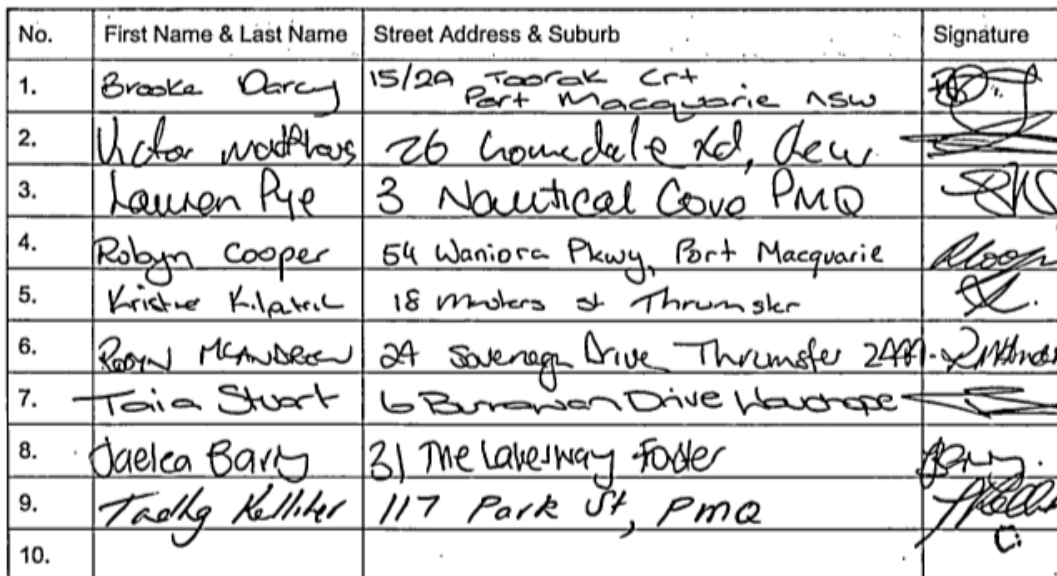 No. First Name & Last Name Street Address & Suburb Signature
1. Brooke Darcy 15/29 Toorak Crt
Port Macquarie NSW
2. Victor 26
3. Lauren Pye 3 Nautical Cove PMQ
4. Robyn Cooper 54 Waniora Pkwy, Port Macquarie
5. Kilpatrick 18 Masters st Thrumster
6. Robyn McAndrew Drive Thrumster
7. Taia Stuart 6 Burrawan Drive Wauchope
8. Jaelea Barry 31 The Lakesway Foster
9. Tadhg Kelliher 117 Park St, PMQ
10.